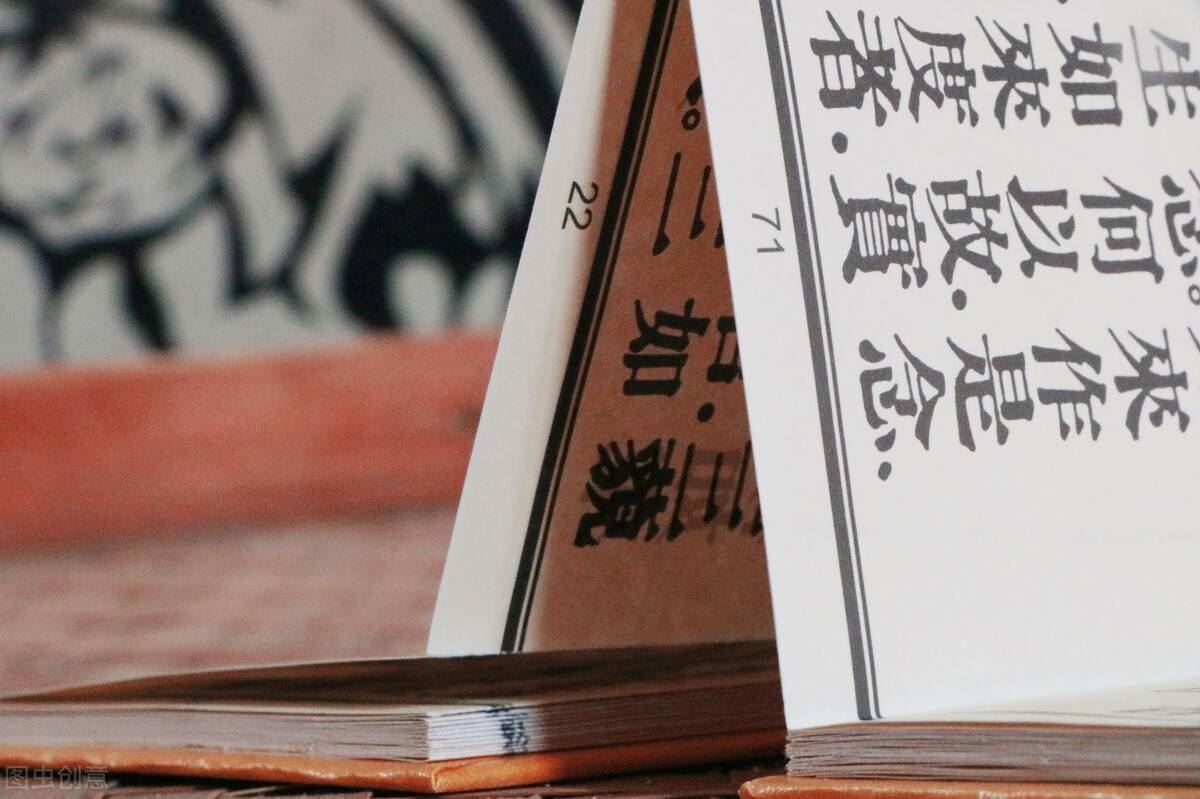 71
來作是念．
念。何以故．實
生如來度者．
22
三藐
如
三
图虫创意